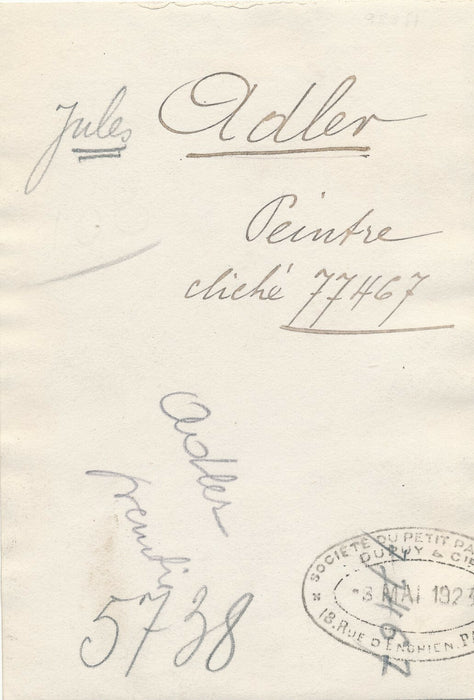 Jules Adler
Peintre
cliché 77467
Adler
5738
SOCIÉTÉ DU PETIT PA
DUPUY & CIE
3 MAI 192
18, RUE D'ENGHIEN, P
77467